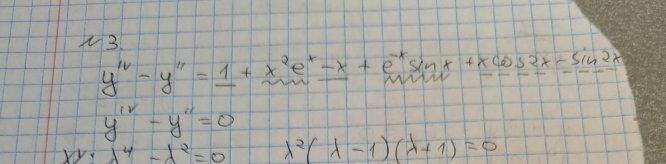 №3.
y^IV − y'' = 1 + x²eˣ − x + e⁻ˣ sin x + x cos 2x − sin 2x
y^IV − y'' = 0
ХУ: λ⁴ − λ² = 0 λ²(λ − 1)(λ + 1) = 0